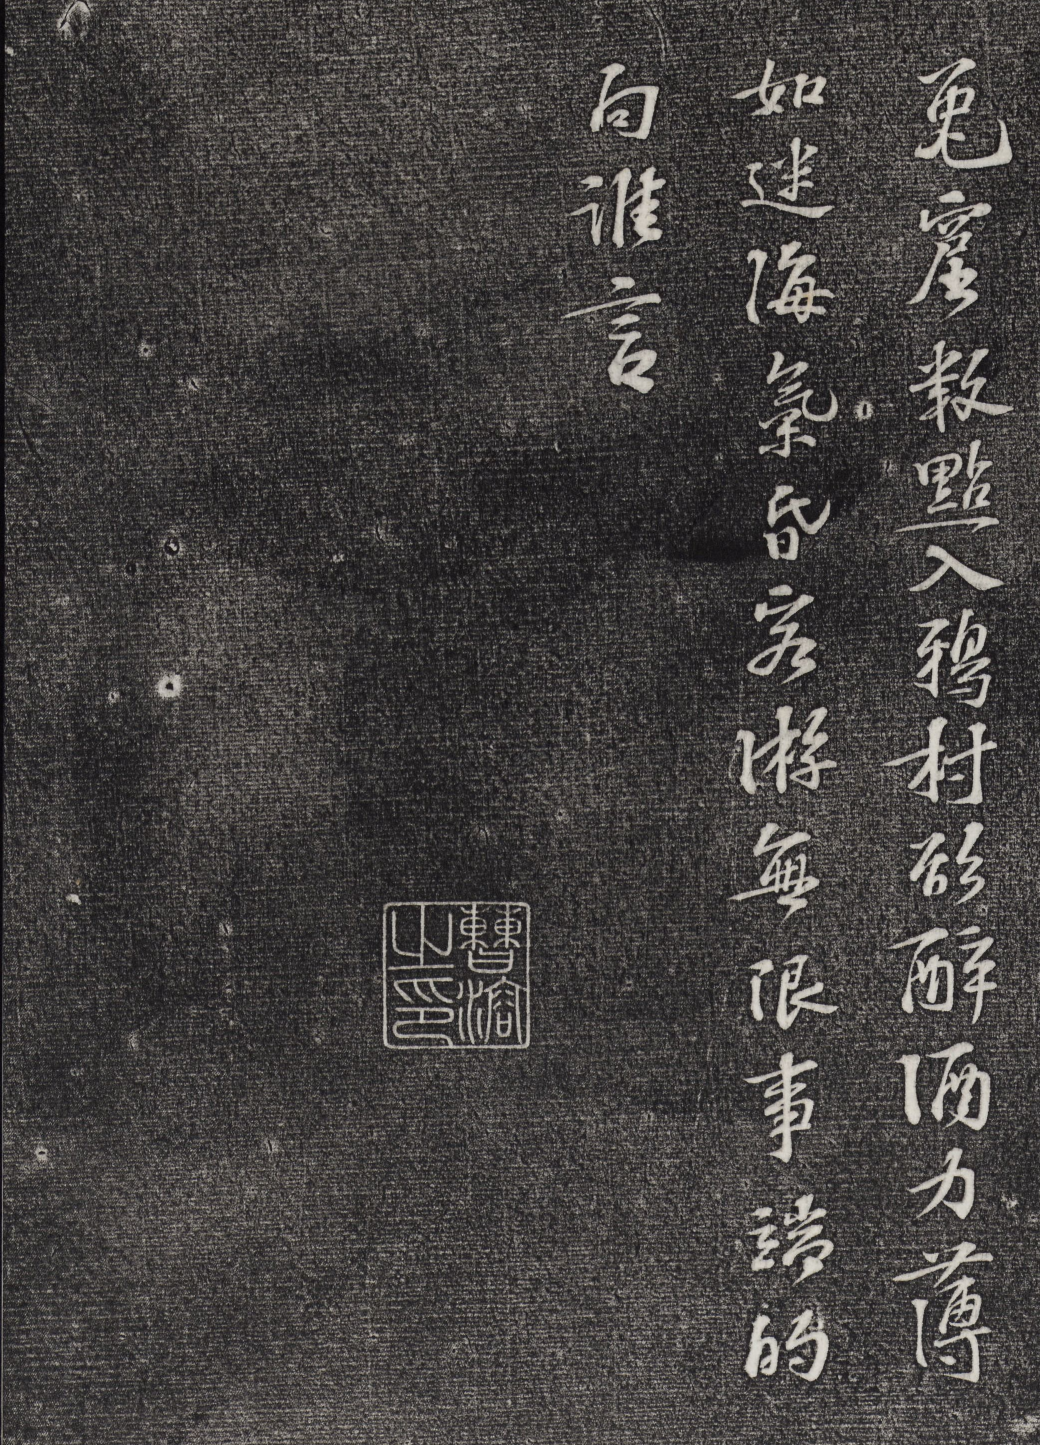 兔窟數點入鴉村欲醉酒力薄
如迷海氣昏客游無限事端的
向誰言
曹溶
之印